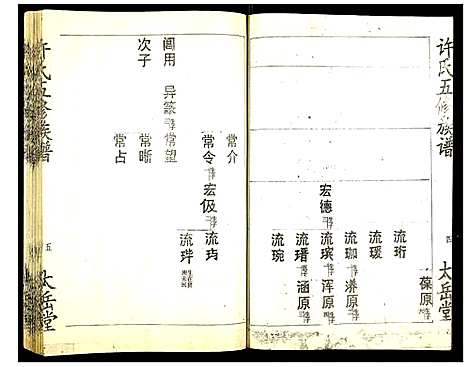 许氏五修族谱
四
太岳堂
葆原
流珩
流瑗
流珈 漭原
宏德 流瑸 浑原
流瑨 涵原
流琬
常介
常令 宏伋 流玙
流玶
阊用 异篆 常望
次子
常晰
常占
许氏五修族谱
五
太岳堂